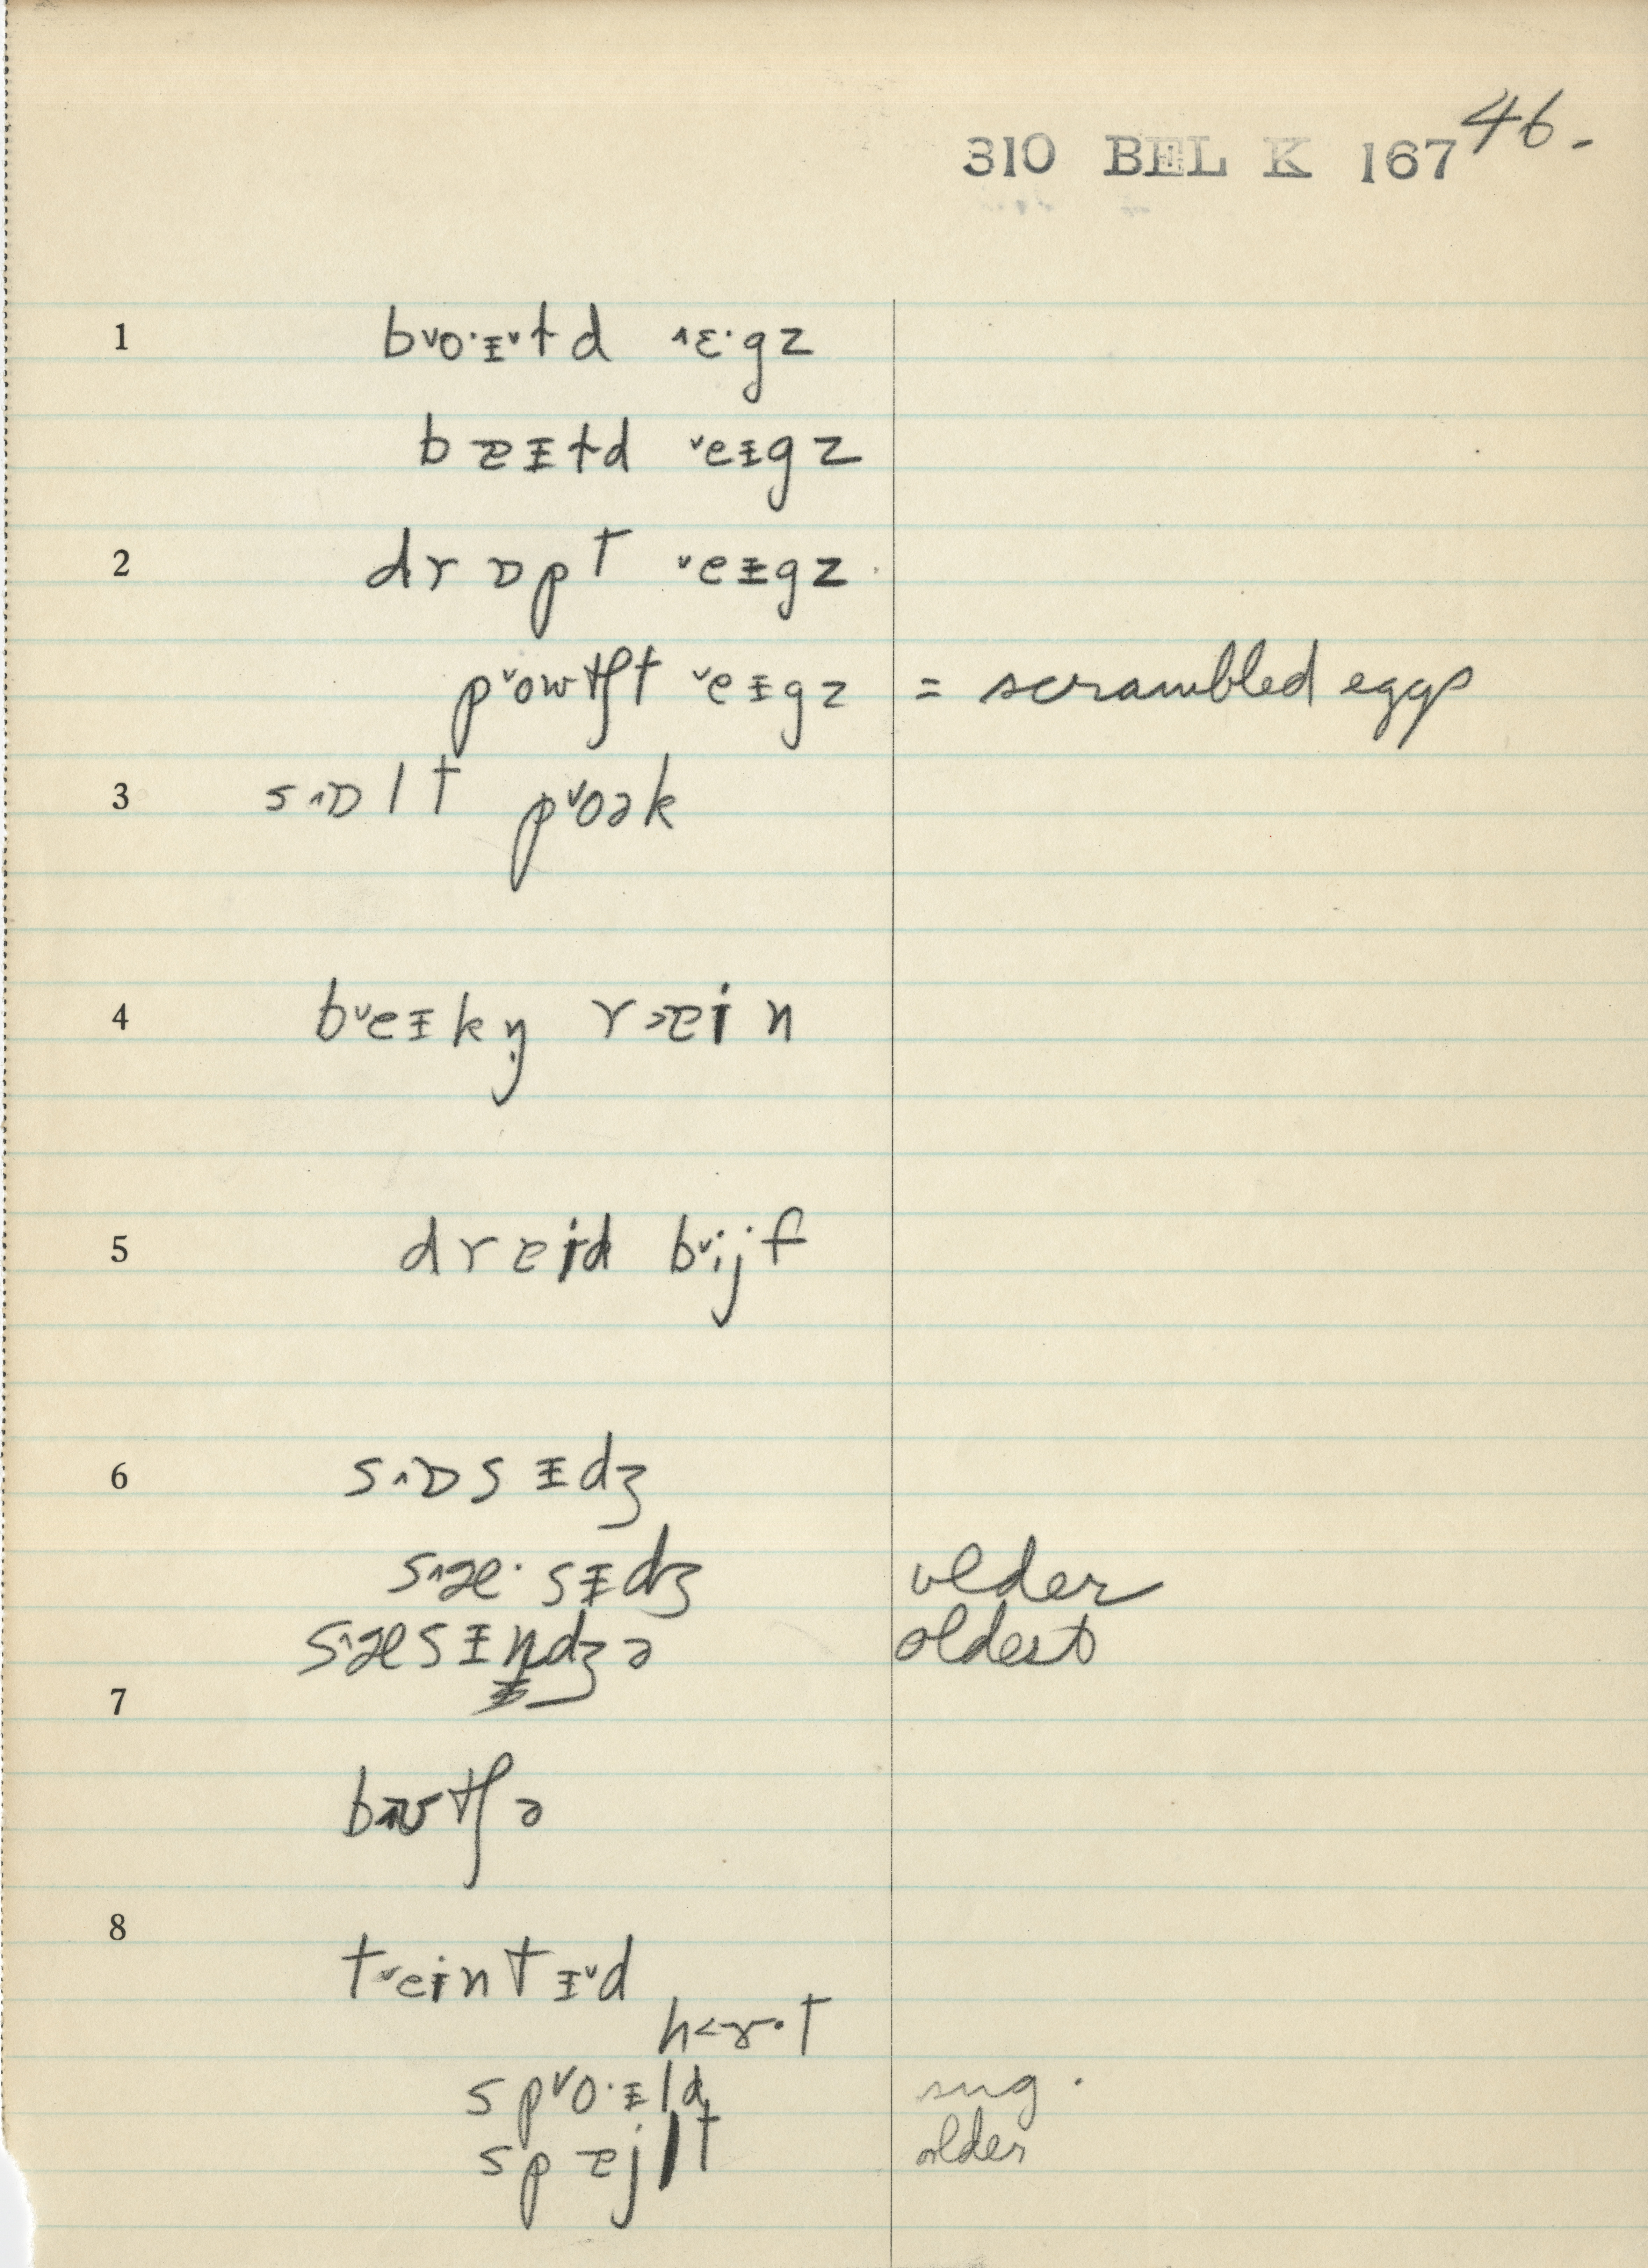 46.
310 BEL K 167
1 b˅o·ᵻ˅td ˄ɛ·gz
bɐᵻtd ˅eᵻgz
2 drɒpt ˅eᵻgz
p˅owtʃt ˅eᵻgz = scrambled eggs
3 s˄ɒlt p˅oək
4 b˅eᵻkŋ̩ r˃ɐin
5 drɐid b˅ijf
6 s˄ɒsᵻdʒ
s˄æ·sᵻdʒ older
s˄æsᵻndʒə oldest
7
bʊtʃə
8
t˅eintᵻ˅d
h<ɤ·t
sp˅o·ᵻld sug.
spɐjlt older